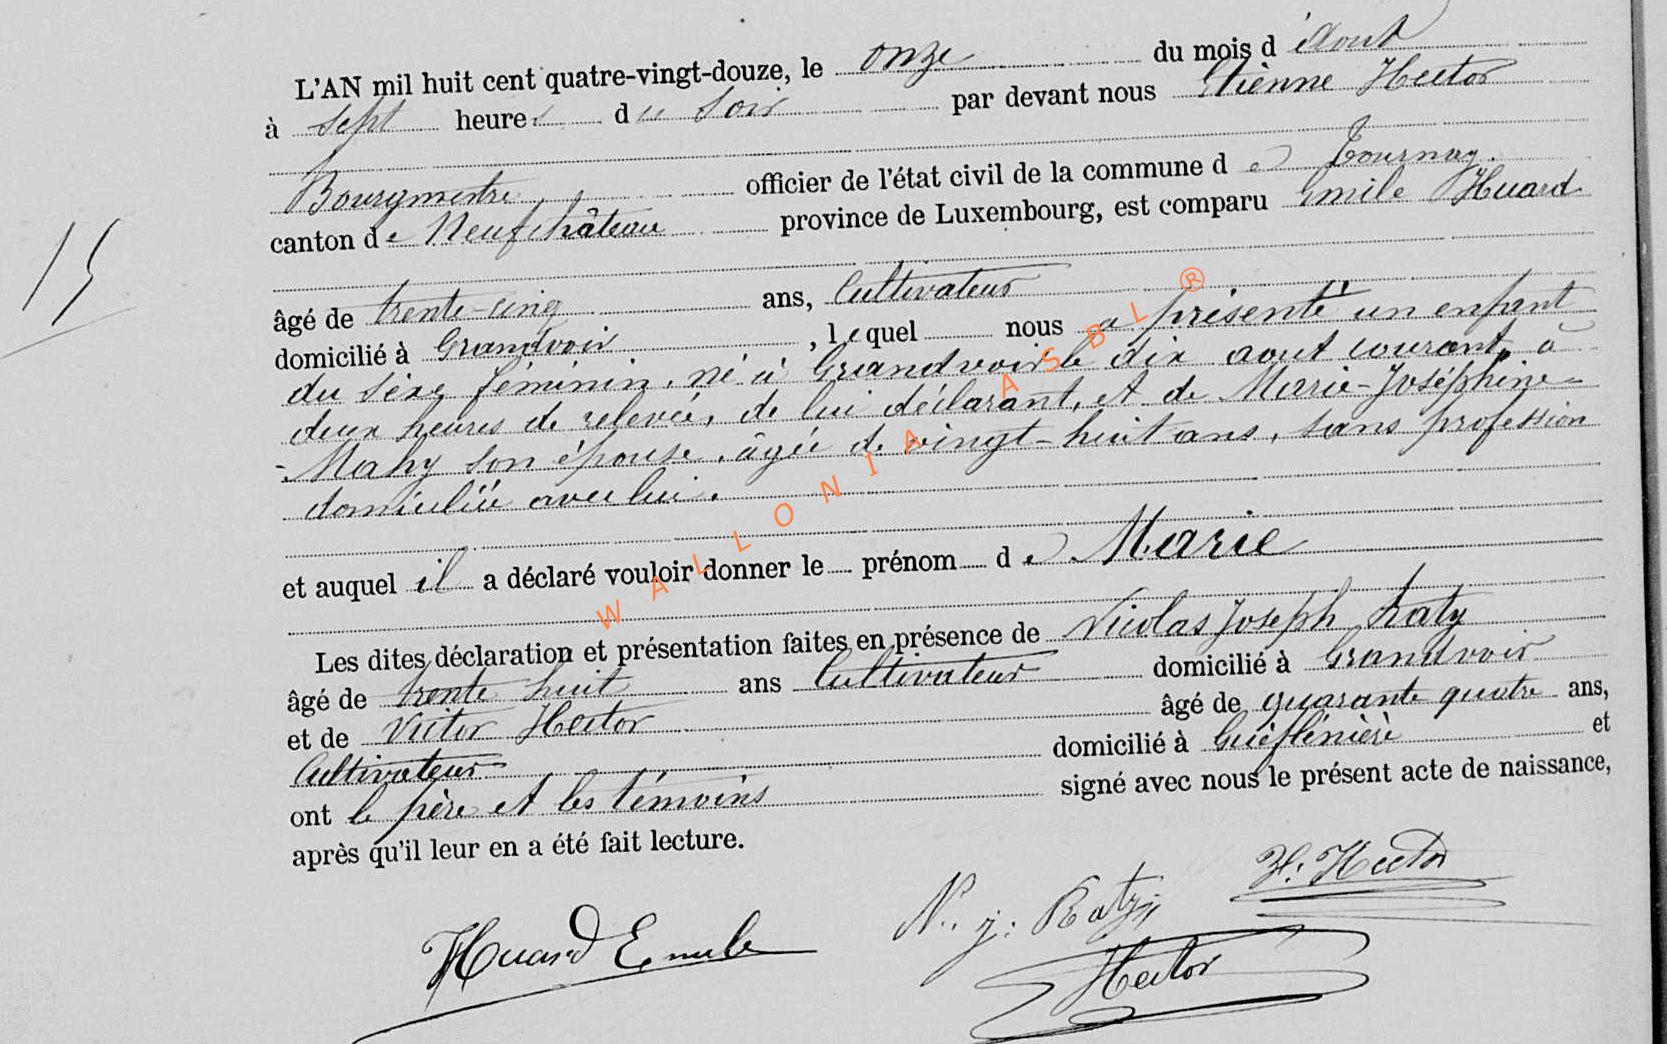 L'AN mil huit cent quatre-vingt-douze, le onze du mois d'Aout
à sept heures du Soir par devant nous Etiènne Hector
Bourgmestre officier de l'état civil de la commune de Tournay.
canton de Neufchâteau province de Luxembourg, est comparu Emile Huard
âgé de trente-cinq ans, Cultivateur
domicilié à Grandvoir, lequel nous a présenté un enfant
du sèxe féminin, né à Grandvoir le dix aout courant, à
deux heures de relevée, de lui déclarant, et de Marie-Joséphine-
-Mahy son épouse, âgée de vingt-huit ans, sans profession
domiciliée avec lui.
et auquel il a déclaré vouloir donner le prénom de Marie
Les dites déclaration et présentation faites en présence de Nicolas Joseph Raty
âgé de trente huit ans Cultivateur domicilié à Grandvoir
et de Victor Hector âgé de quarante quatre ans,
Cultivateur domicilié à et
ont le père et les témoins signé avec nous le présent acte de naissance,
après qu'il leur en a été fait lecture.
15
Huard Emile
N. j. Raty
Hector
Hector
WALLONIA ASBL ®